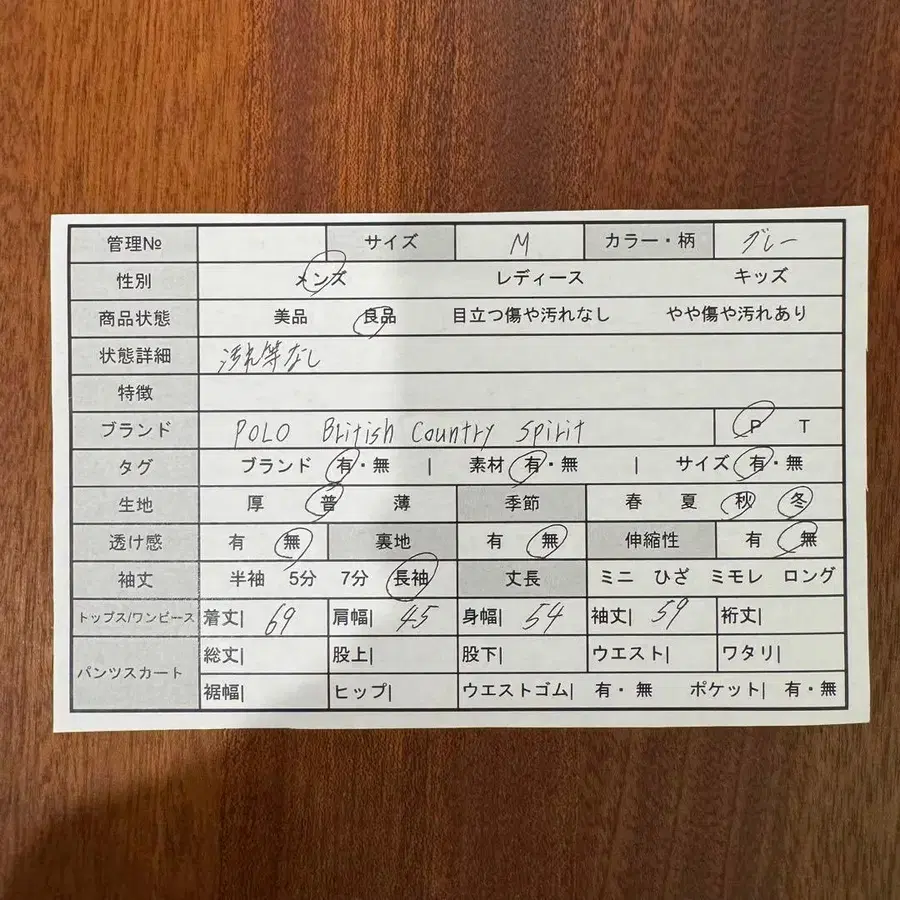 管理№ サイズ M カラー・柄 グレー
性別 メンズ レディース キッズ
商品状態 美品 良品 目立つ傷や汚れなし やや傷や汚れあり
状態詳細 汚れ等なし
特徴
ブランド POLO British Country Spirit P T
タグ ブランド 有・無 | 素材 有・無 | サイズ 有・無
生地 厚 普 薄 季節 春 夏 秋 冬
透け感 有 無 裏地 有 無 伸縮性 有 無
袖丈 半袖 5分 7分 長袖 丈長 ミニ ひざ ミモレ ロング
トップス/ワンピース 着丈| 69 肩幅| 45 身幅| 54 袖丈| 59 裄丈|
パンツスカート 総丈| 股上| 股下| ウエスト| ワタリ|
裾幅| ヒップ| ウエストゴム| 有・無 ポケット| 有・無